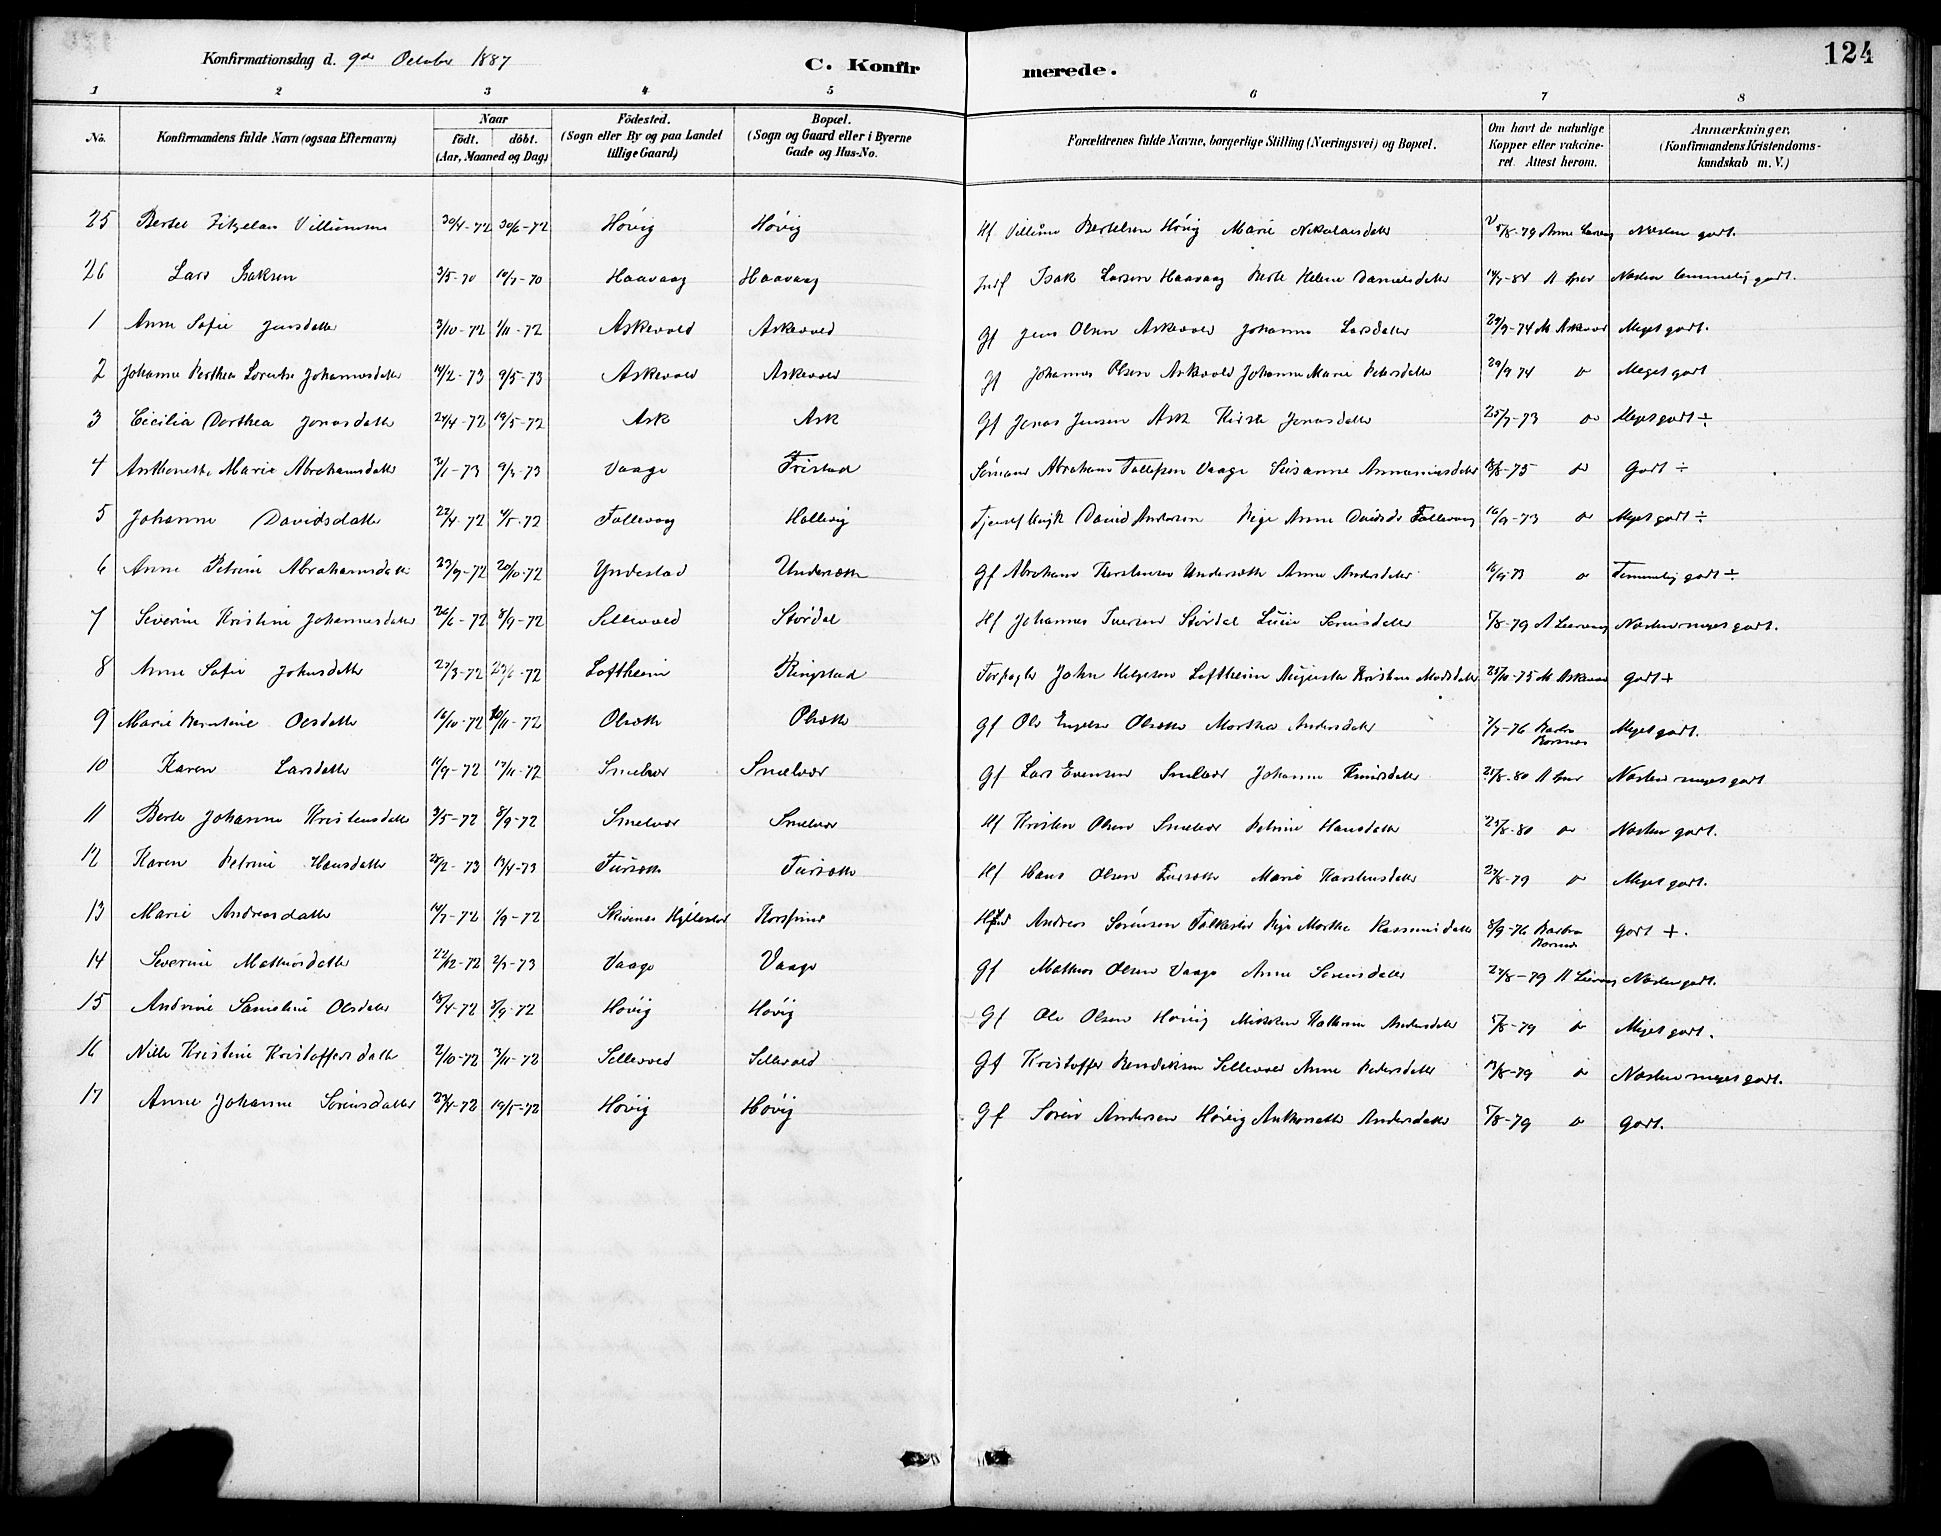 124
Konfirmationsdag d. 9de October 1887
C. Konfirmerede.
1 2 3 4 5 6 7 8
No. Konfirmandens fulde Navn (ogsaa Efternavn) Naar födt. döbt. (Aar, Maaned og Dag) Födested. (Sogn eller By og paa Landet tillige Gaard) Bopæl. (Sogn og Gaard eller i Byerne Gade og Hus-No. Forældrenes fulde Navne, borgerlige Stilling (Næringsvei) og Bopæl. Om havt de naturlige Kopper eller vakcineret. Attest herom. Anmærkninger, (Konfirmandens Kristendomskundskab m. V.)
25 Bertel 30/4-72 30/6-72 Høvig Høvig Hf Villum Bertelsen Høvig Marie Nikolaisdatter 5/8-79 Næsten godt.
26 Lars Isaksen 3/5-70 Haavaag Haavaag Isak Larsen Haavaag Berte Helene Danielsdatter Næsten temmelig godt.
1 Anne Sofie Jensdatter 3/10-72 1/11-72 Askevold Askevold Gf Jens Olsen Askevold Johanne Larsdatter 29/9-74 M Askevold Meget godt.
2 Johanne Berthea Lorentse Johannesdatter 14/2-73 9/5-73 Askevold Askevold Gf Johannes Olsen Askevold Johanne Marie Petersdatter 29/9 74 Meget godt
3 Cicilia Dorthea Jonasdatter 24/4-72 19/5-72 Ask Ask Gf Jonas Jensen Ask Kirste Jonasdatter 25/7-73 Meget godt ÷
4 Anthonette Marie Abrahamsdatter 3/1-73 9/3-73 Vaage Tristad Abraham Tollefsen Vaage Susanne Annaniasdatter Godt ÷
5 Johanne Davidsdatter 22/4-72 Follevaag Hellevig David Andersen Pige Anne Davidsd Follevaag 16/9-73 Meget godt ÷
6 Anne Petrine Abrahamsdatter 23/9-72 20/10-72 Yndestad Undersæth Gf Abraham Karstensen Undersæth Anne Andersdatter 16/9-73 Temmelig godt ÷
7 Severine Kristine Johannesdatter 26/6-72 8/9-72 Sellevold Stórdal Hf Johannes Iversen Stórdal Lucie Sørensdatter 5/8-79 Næsten meget godt.
8 Anne Sofie Johnsdatter 27/3-72 Loftheim Ringstad Forpagter John Helgesen Loftheim Augusta Kristine Madsdatter 25/11-75 M Askevold Godt +
9 Marie Berntine Olsdatter 16/10-72 10/11-72 Olsæth Olsæth Gf Ole Engelsen Olsæth Martha Andersdatter 7/7-76 Barbra Meget godt.
10 Karen Larsdatter 11/9-72 17/11-72 Smelvær Smelvær Gf Lars Evensen Smelvær Johanne Knudsdatter 25/8-80 Næsten meget godt
11 Berte Johanne Kristensdatter 3/5-72 8/9-72 Smelvær Smelvær Hf Kristen Olsen Smelvær Petrine Hansdatter 25/8-80 Næsten godt.
12 Karen Petrine Hansdatter 28/2-73 13/4-73 Fursæth Fursæth Hf Hans Olsen Fursæth Marie Karstensdatter 27/8-79 Meget godt.
13 Marie Andreasdatter 14/7-72 1/9-72 Skivenes Hyllestad Andreas Sørensen Pige Marthe Rasmusdatter 8/9-76 Barbra Godt +.
14 Severine Mathiasdatter 22/12-72 2/3-73 Vaage Vaage Gf Mathias Olsen Vaage Anne Sørensdatter 27/8-79 Næsten godt.
15 Andrine Samoline Olsdatter 18/4-72 8/9-72 Høvig Høvig Gf Ole Olsen Høvig Katharine Andersdatter 5/8-79 Meget godt.
16 Nille Kristine Kristoffersdatter 2/10-72 3/11-72 Sellevold Sellevold Gf Kristoffer Bendiksen Sellevold Anne Pedersdatter 13/8-79 Næsten meget godt.
17 Anne Johanne Sørensdatter 19/5-72 Høvig Høvig Gf Søren Andersen Høvig Anthonette Andersdatter 5/8-79 Godt.